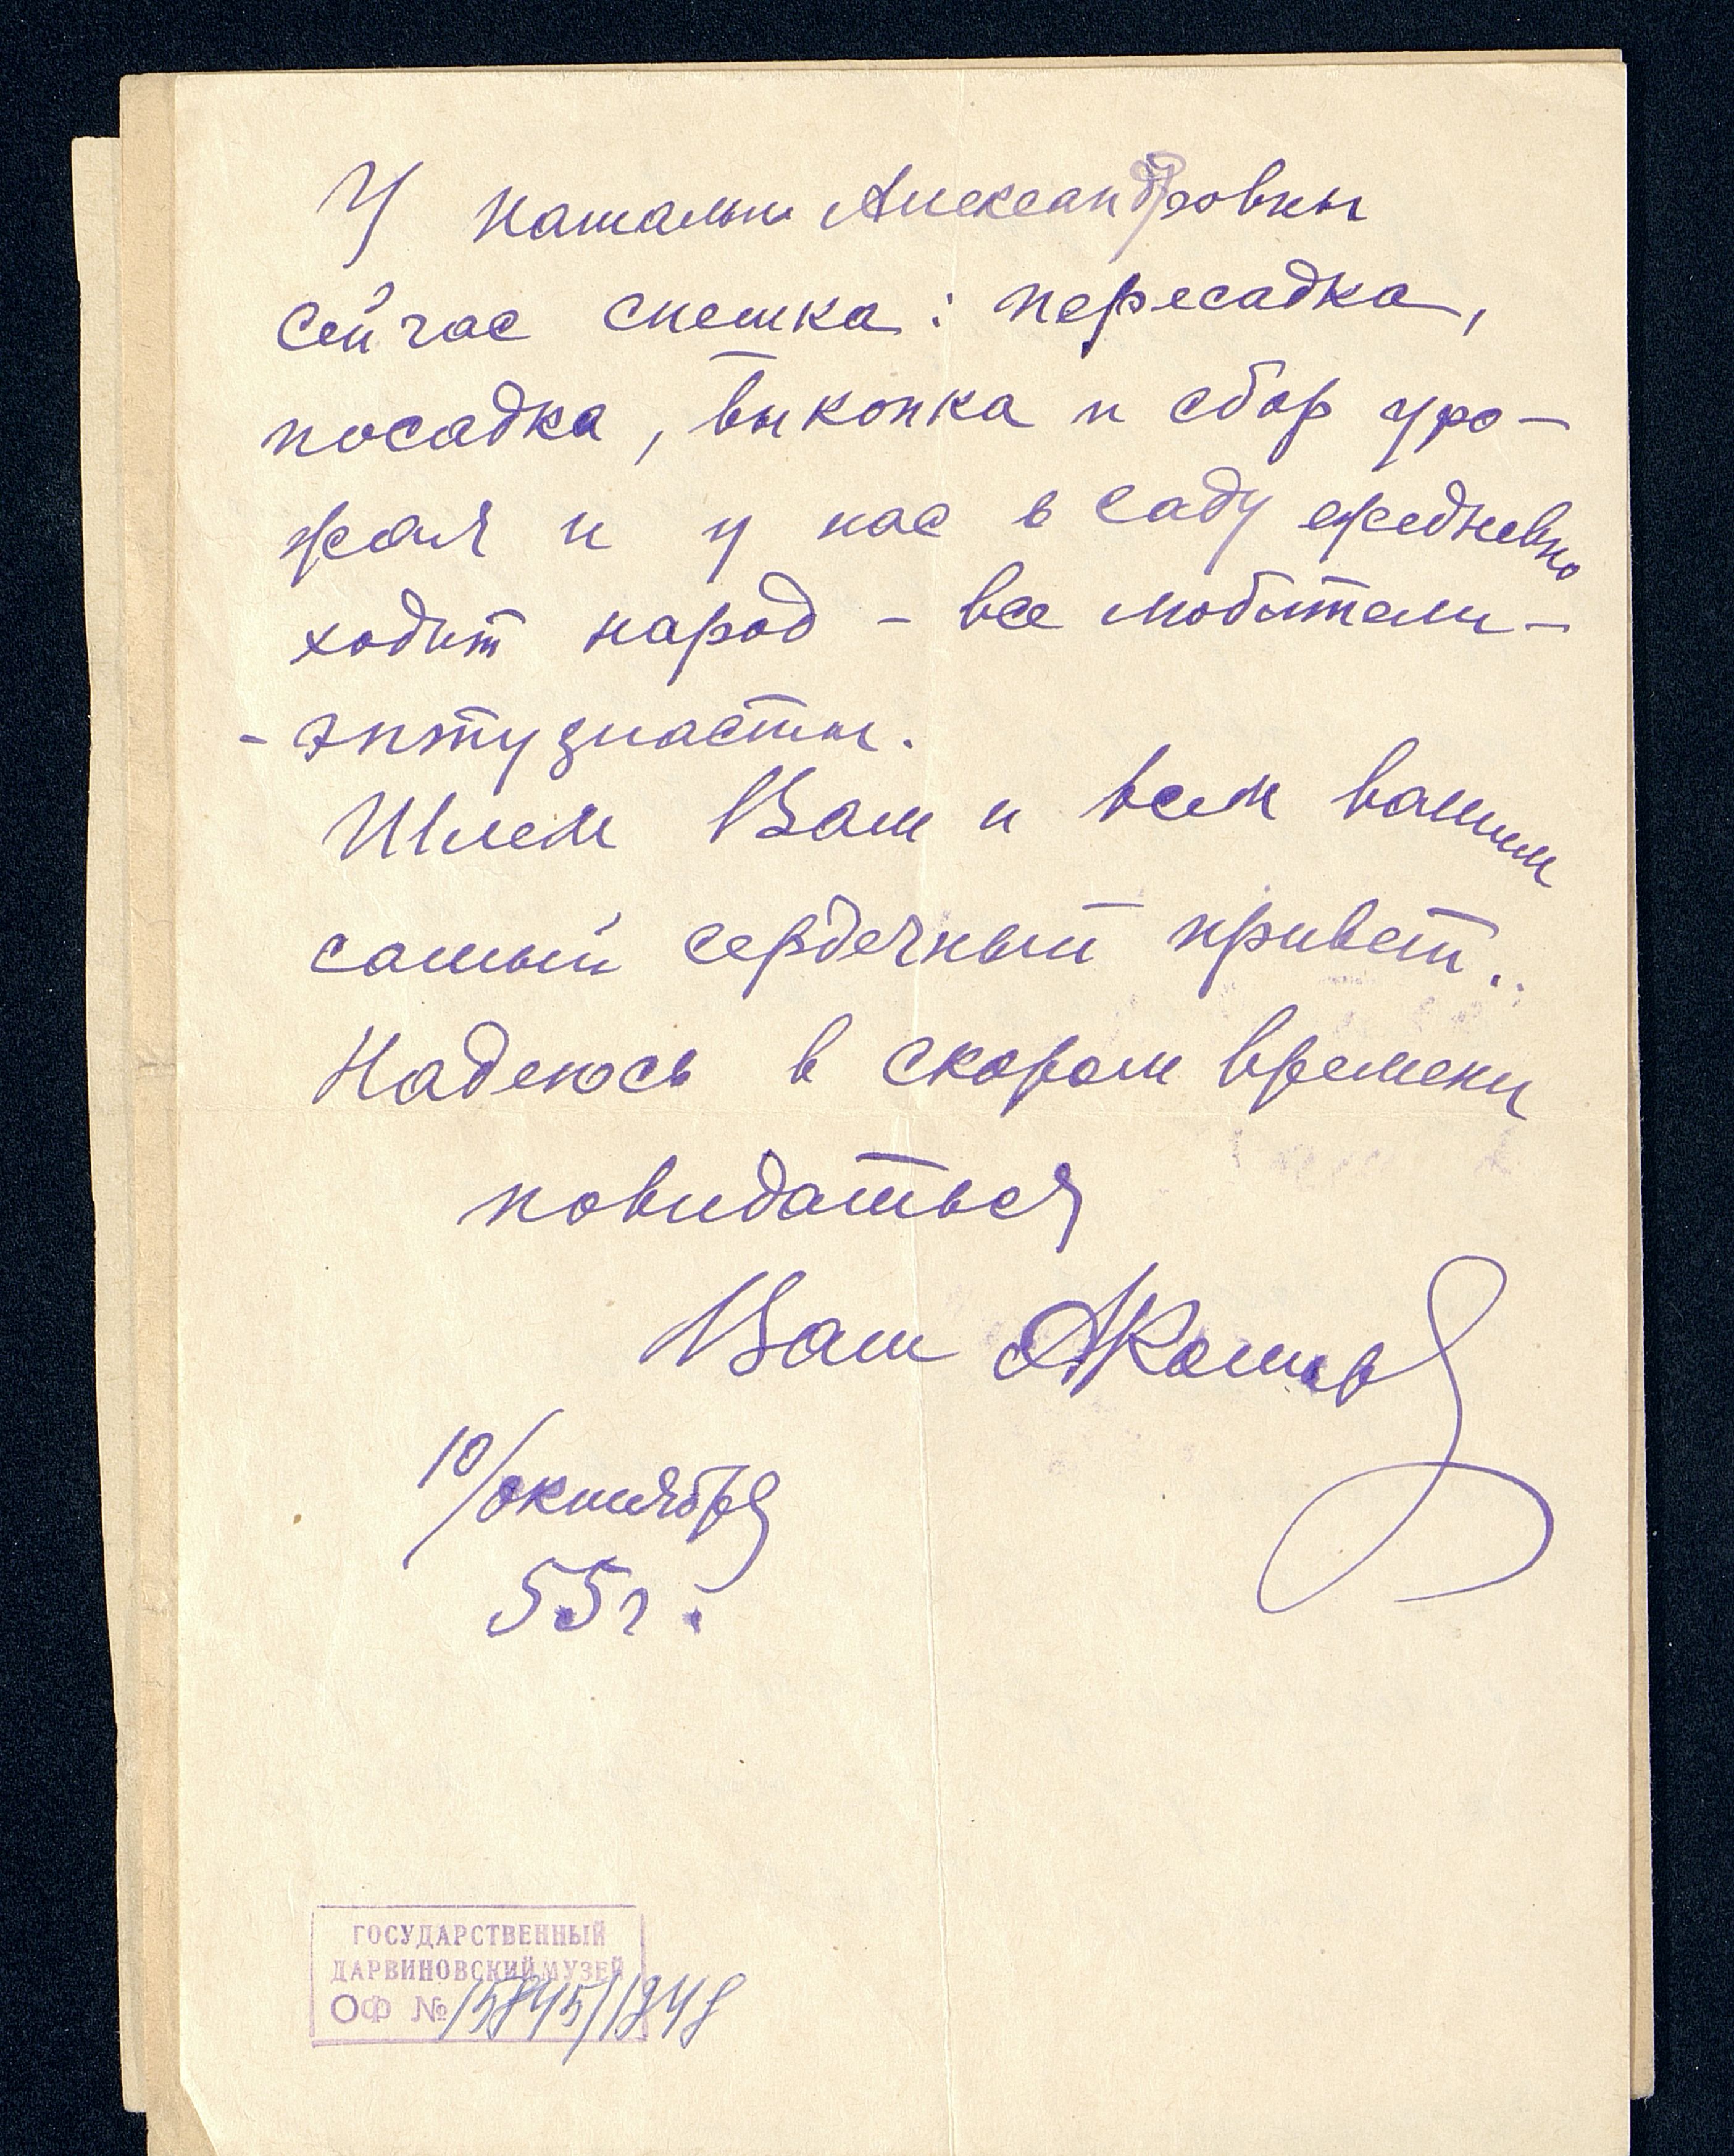 У Натальи Александровны
сейчас спешка: пересадка,
посадка, выкопка и сбор уро-
жая и у нас в саду ежедневно
ходит народ - все любители-
-энтузиасты.
Шлем Вам и всем вашим
самый сердечный привет.
Надеюсь в скором времени
повидаться
Ваш
10/октября
55г.
ГОСУДАРСТВЕННЫЙ
ДАРВИНОВСКИЙ МУЗЕЙ
ОФ №